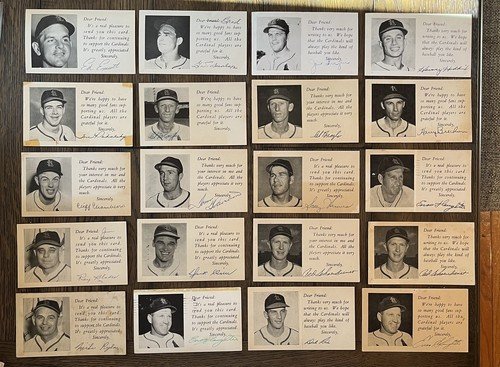 Dear Friend:
It's a real pleasure to
send you this card.
Thanks for continuing
to support the Cardinals.
It's greatly appreciated.
Sincerely,
Dear Friend:
We're happy to have
so many good fans sup-
porting us. All the
Cardinal players are
grateful for it.
Sincerely,
Dear Friend:
Thanks very much for
writing to us. We hope
that the Cardinals will
always play the kind of
baseball you like.
Sincerely,
Dear Friend:
Thanks very much for
writing to us. We hope
that the Cardinals will
always play the kind of
baseball you like.
Sincerely,
Dear Friend:
We're happy to have
so many good fans sup-
porting us. All the
Cardinal players are
grateful for it.
Sincerely,
Dear Friend:
We're happy to have
so many good fans sup-
porting us. All the
Cardinal players are
grateful for it.
Sincerely,
Dear Friend:
Thanks very much for
your interest in me and
the Cardinals. All the
players appreciate it
very much.
Sincerely,
Dear Friend:
We're happy to have
so many good fans sup-
porting us. All the
Cardinal players are
grateful for it.
Sincerely,
Harry Brecheen
Dear Friend:
Thanks very much for
your interest in me and
the Cardinals. All the
players appreciate it
very much.
Sincerely,
Dear Friend:
Thanks very much for
your interest in me and
the Cardinals. All the
players appreciate it
very much.
Sincerely,
Dear Friend:
Thanks very much for
your interest in me and
the Cardinals. All the
players appreciate it
very much.
Sincerely,
Dear Friend:
It's a real pleasure to
send you this card.
Thanks for continuing
to support the Cardinals.
It's greatly appreciated.
Sincerely,
Enos Slaughter
Dear Friend:
It's a real pleasure to
send you this card.
Thanks for continuing
to support the Cardinals.
It's greatly appreciated.
Sincerely,
Dear Friend:
It's a real pleasure to
send you this card.
Thanks for continuing
to support the Cardinals.
It's greatly appreciated.
Sincerely,
Dear Friend:
Thanks very much for
writing to us. We hope
that the Cardinals will
always play the kind of
baseball you like.
Sincerely,
Red Schoendienst
Dear Friend:
Thanks very much for
writing to us. We hope
that the Cardinals will
always play the kind of
baseball you like.
Sincerely,
Red Schoendienst
Dear Friend:
It's a real pleasure to
send you this card.
Thanks for continuing
to support the Cardinals.
It's greatly appreciated.
Sincerely,
Dear Friend:
It's a real pleasure to
send you this card.
Thanks for continuing
to support the Cardinals.
It's greatly appreciated.
Sincerely,
Dear Friend:
Thanks very much for
writing to us. We hope
that the Cardinals will
always play the kind of
baseball you like.
Sincerely,
Dear Friend:
We're happy to have
so many good fans sup-
porting us. All the
Cardinal players are
grateful for it.
Sincerely,